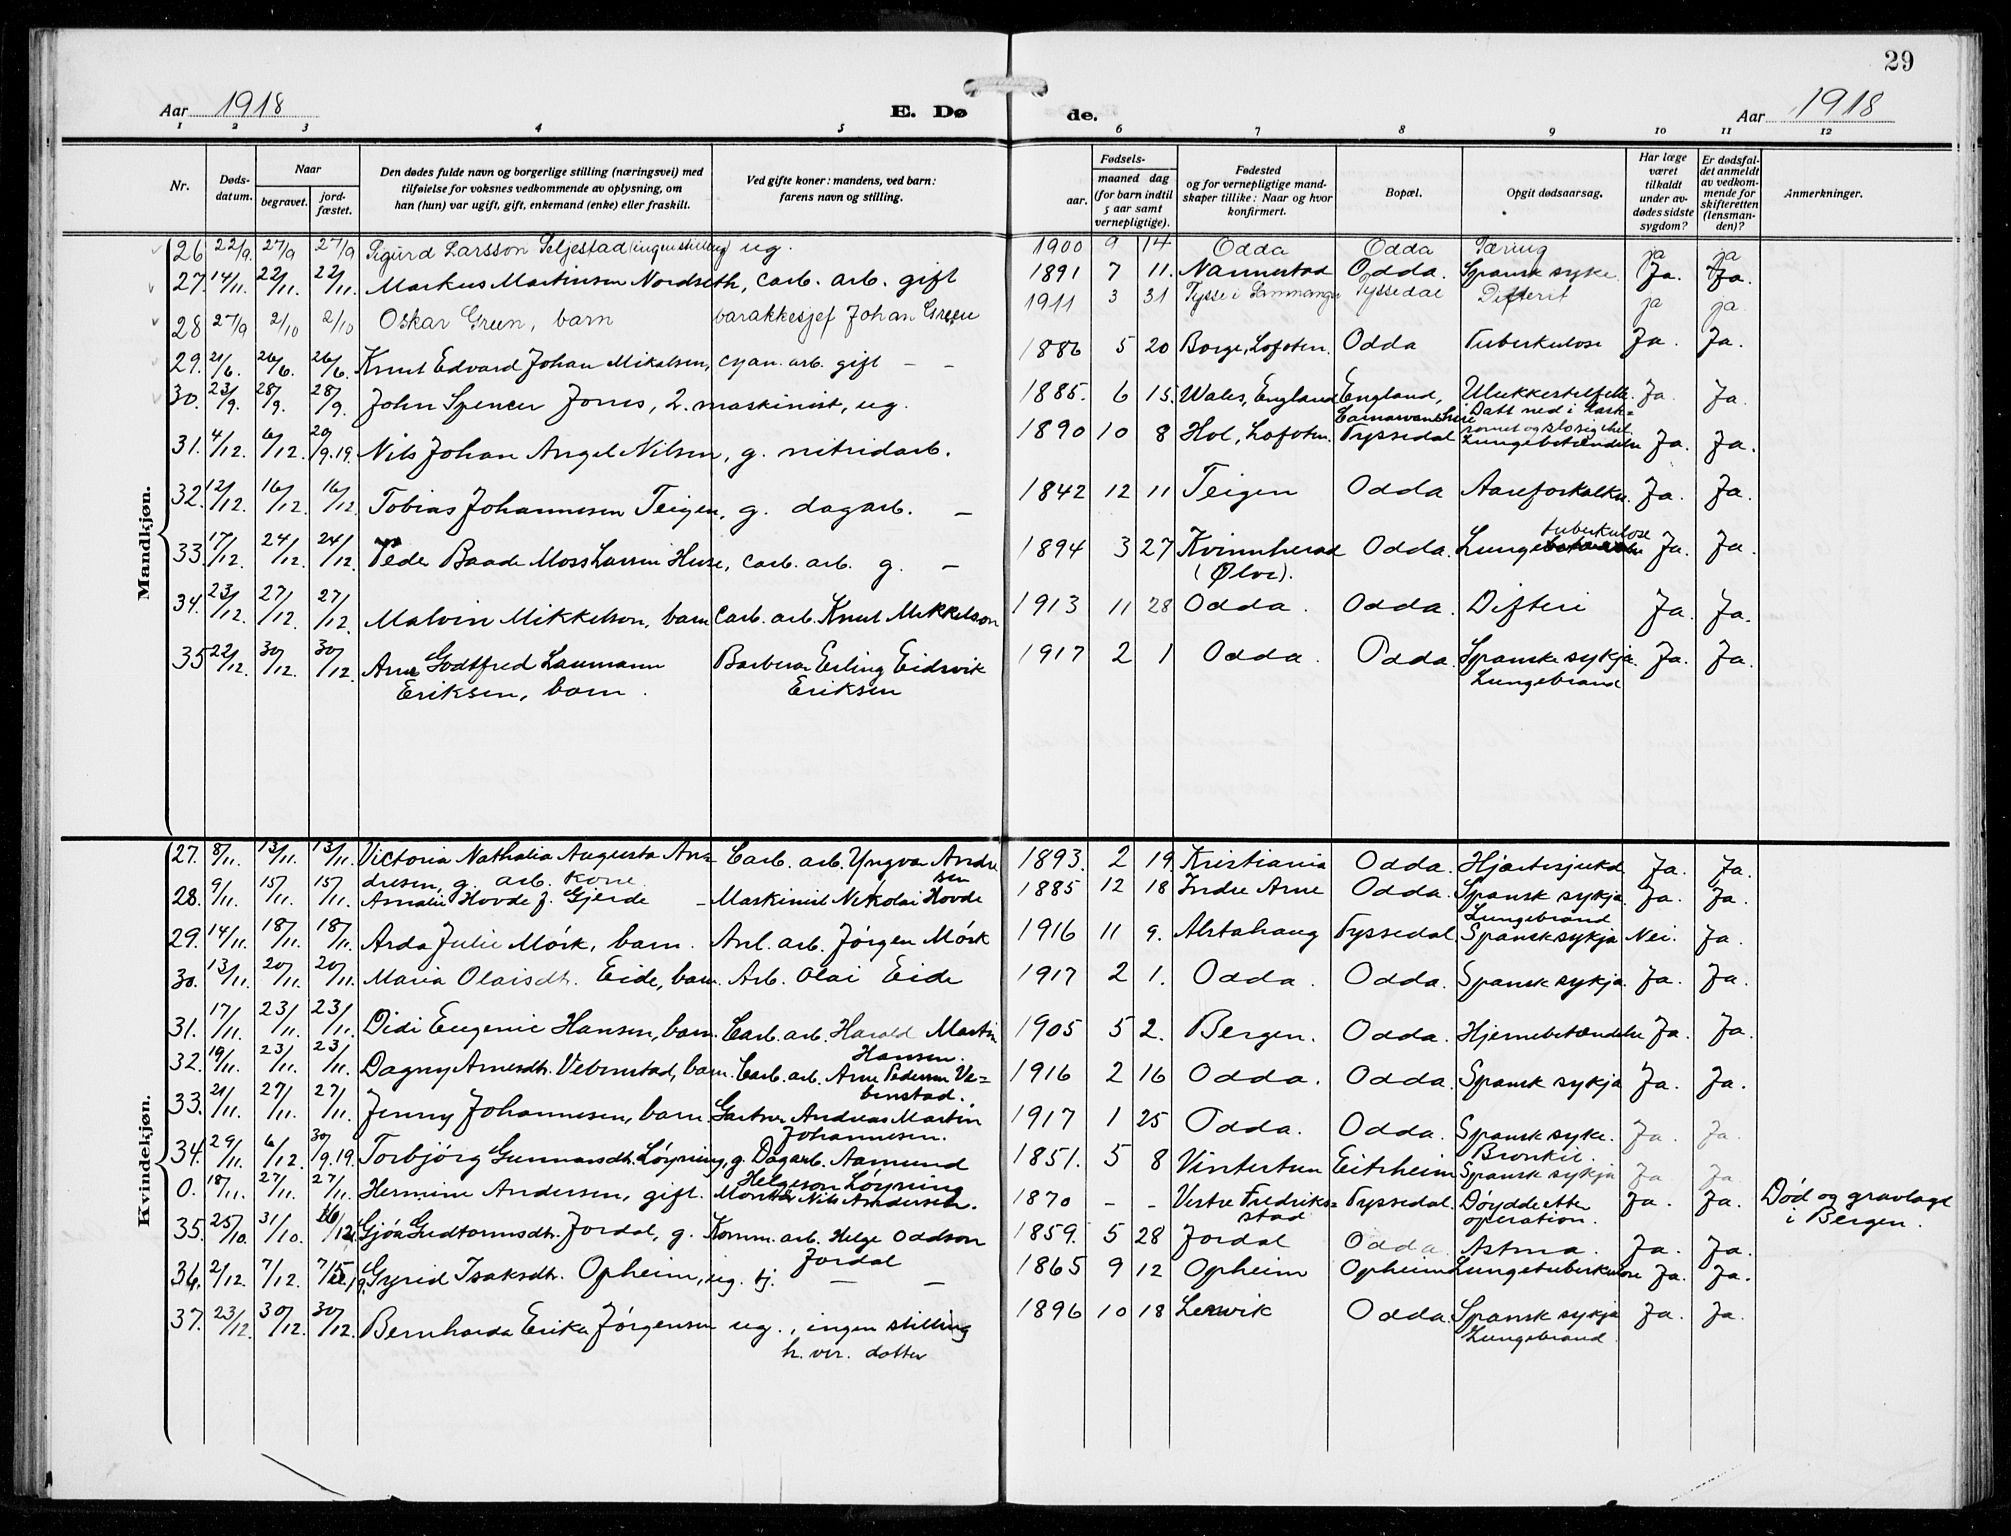 29
Aar 1918 E. Døde. Aar 1918
1 2 3 4 5 6 7 8 9 10 11 12
Nr. Dødsdatum. Naar begravet. jordfæstet. Den dødes fulde navn og borgerlige stilling (næringsvei) med tilføielse for voksnes vedkommende av oplysning, om han (hun) var ugift, gift, enkemand (enke) eller fraskilt. Ved gifte koner: mandens, ved barn: farens navn og stilling. Fødsels- aar. maaned dag (for barn indtil 5 aar samt vernepligtige). Fødested og for vernepligtige mandskaper tillike: Naar og hvor konfirmert. Bopæl. Opgit dødsaarsag. Har læge været tilkaldt under avdødes sidste sygdom? Er dødsfaldet anmeldt av vedkommende for skifteretten (lensmanden)? Anmerkninger.
Mandkjøn.
26 22/9. 27/9 27/9 Sigurd Larsson Seljestad (ingen stilling) ug. 1900 9 14 Odda Odda Tæring ja ja
27. 14/11. 22/11. 22/11. Markus Martinsen Nordseth, carb. arb. gift 1891 7 11. Nannestad Odda. Spansk syke Ja. Ja.
28 27/9 2/10 2/10 Oskar Green, barn barakkesjef Johan Green 1911 3 31 Tysse i Samnanger Tyssedal Difterit ja ja
29. 21/6. 26/6. 26/6. Knut Edvard Johan Mikalsen, cyan. arb. gift — — 1886 5 20 Borge, Lofoten. Odda Tuberkulose Ja. Ja.
30. 23/9. 28/9. 28/9. John Spencer Jones, 2. maskinist, ug. 1885. 6 15. Wales, England England, Carnarvonshire Ulukkestilfelle. Datt ned i lastromet og slo sig ihel Ja. Ja.
31. 4/12. 6/12. 20/9.19. Nils Johan Angel Nilsen, g. nitridarb. 1890 10 8 Hol, Lofoten. Tyssedal Lungebetændelse Ja. Ja.
32. 12/12. 16/12. 16/12. Tobias Johannesen Teigen, g. dagarb. — 1842 12 11 Teigen Odda Aareforkalkn. Ja. Ja.
33. 17/12. 24/12. 24/12. Peder Baade Moss Larsen Huse, carb. arb. g. — 1894 3 27 Kvinnherad (Ølve). Odda. Lungetuberkulose Ja. Ja.
34. 23/12. 27/12. 27/12. Malvin Mikkelson, barn carb. arb. Knut Mikkelson 1913 11 28 Odda. Odda. Difteri Ja. Ja.
35 22/12. 30/12. 30/12. Arne Godtfred Laumann Barberar Erling Eidsvik 1917 2 1 Odda. Odda. Spanske sykja Ja. Ja.
Eriksen, barn. Eriksen Lungebrand
Kvindekjøn.
27. 8/11. 13/11. 13/11. Victoria Nathalia Augusta An= Carb. arb. Yngvar Andre 1893. 2 19. Kristiania Odda. Hjartesjukd. Ja. Ja.
dresen, g. arb. kone. sen
28. 9/11. 15/11. 15/11. Amalie Hovde f. Gjerde - Maskinist Nikolai Hovde 1885 12 18 Indre Arne Odda. Spansk sykja Ja. Ja.
Lungebrand
29. 14/11. 18/11. 18/11. Arda Julie Mörk, barn. Anl. arb. Jörgen Mörk 1916 11 9. Alstahaug Tyssedal Spansk sykja Nei. Ja.
30. 13/11. 20/11. 20/11. Maria Olaisdtr. Eide, barn. Arb. Olai Eide 1917 2 1. Odda. Odda. Spansk sykja. Ja. Ja.
31. 17/11. 23/11. 23/11. Didi Eugenie Hansen, barn. Carb. arb. Harald Martin 1905 5 2. Bergen. Odda. Hjernebetændelse Ja. Ja.
Hansen.
32. 19/11. 23/11. 23/11. Dagny Arnesdtr. Vebenstad, barn. Carb. arb. Arne Pedersen Ve= 1916 2 16 Odda. Odda. Spansk sykja Ja. Ja.
benstad.
33. 21/11. 27/11. 27/11. Jenny Johannesen, barn. Gartner Andreas Martin 1917 1 25 Odda. Odda. Spansk syke. Ja. Ja.
Johannesen. Bronkit.
34. 29/11. 6/12. 30/9.19. Torbjörg Gunnarsdtr. Löyning, g. Dagarb. Aamund 1851. 5 8 Vintertun Eitrheim Spansk sykja Ja Ja
Helgeson Löyning
0. 18/11. 27/11. 27/11. Hermine Andersen, gift. Montör Nils Andersen. 1870 - - Vestre Fredriks= Tyssedal. Döydde etter Ja. Ja. Död og gravlagd
stad operation. i Bergen.
35. 25/10. 31/10. 16/12. Gjöa Guttormsdtr. Jordal, g. Komm. arb. Helge Oddson 1859. 5 28 Jordal Odda. Astma. Ja. Ja.
Jordal
36. 2/12. 7/12. Gyrid Isaksdtr. Opheim, ug. tj. — — 1865 9 12 Opheim Opheim Lungetuberkulose Ja. Ja.
37. 23/12. 30/12. 30/12. Bernharda Erika Jörgensen ug., ingen stilling 1896 10 18 Lervik Odda. Spansk sykja Ja. Ja.
h. vir. dotter Lungebrand.